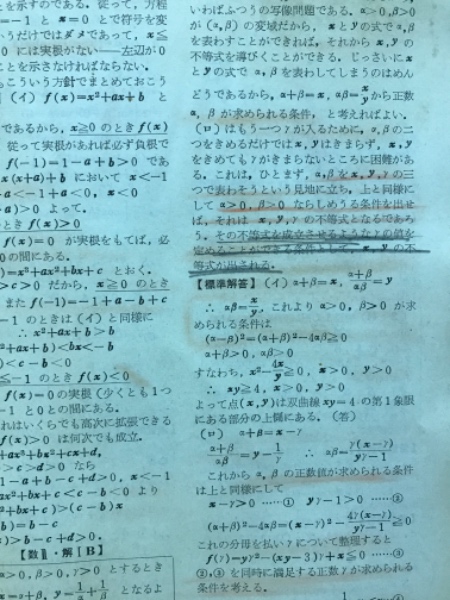 とを示すのである。従って，方程
−1 と x=0 とで符号を変
いうだけではダメであって，x≦
0 には実根がない——左辺が0
ことを示さなければならない。
もこういう方針でまとめておこう
(イ) f(x)=x²+ax+b と
であるから，x≧0 のとき f(x)
従って実根があれば必ず負根で
f(−1)=1−a+b>0 であ
x(x+a)+b において x<−1
a<−1+a<0, x<0
a)>0 よって．
のとき f(x)>0
f(x)=0 が実根をもてば，必
0の間にある。
)=x³+ax²+bx+c とおく。
>c>0 だから，x≧0 のとき
また f(−1)=−1+a−b+c
−1 のときは(イ)と同様に
∴ x²+ax+b>b
²+ax+b)<bx<−b
)<c−b<0
≦−1 のとき f(x)<0
f(x)=0 の実根（少くとも1つ
−1 と0との間にある。
れはいくらでも高次に拡張できる
f(x)>0 は何次でも成立．
+ax³+bx²+cx+d,
>c>d>0 なら
1−a+b−c+d>0, x<−1
ax²+bx+c<c−b<0 より
²+bx+c)>(c−b)x
b)=b−c
)>b−c+d>0.
【数Ⅲ・解〔B〕
α>0, β>0, γ>0 とするとき
=α+β, y=1/α+1/β となるよ
いわばふつうの写像問題である。α>0, β>0
が (α, β) の変域だから，x とyの式でα, β
を表わすことができれば，それから x, y の
不等式を導びくことができる。じっさいにx
とyの式でα, βを表わしてしまうのはめん
どうであるから，α+β=x, αβ=x/y から正数
α, β が求められる条件，と考えればよい。
(ロ) はもう一つγが入るために，α, βの二
つをきめるだけではx, yはきまらず，x, y
をきめてもγがきまらないところに困難があ
る。これは，ひとまず，α, βをx, y, γの三
つで表わそうという見地に立ち，上と同様に
して α>0, β>0 ならしめうる条件を出せ
ば，それは x, y, γ の不等式となるであろ
う。その不等式を成立させるようなγの値を
定めることができる条件として，x, y の不
等式が出される。
【標準解答】(イ) α+β=x, (α+β)/αβ=y
∴ αβ=x/y，これより α>0, β>0 が求
められる条件は
(α−β)²=(α+β)²−4αβ≧0
α+β>0, αβ>0
すなわち，x²−4x/y≧0, x>0, y>0
∴ xy≧4, x>0, y>0
よって点(x, y)は双曲線 xy=4 の第1象限
にある部分の上側にある。（答）
(ロ) α+β=x−γ
(α+β)/αβ=y−1/γ ∴ αβ=γ(x−γ)/(γy−1)
これから α, β の正数値が求められる条件
は上と同様にして
x−γ>0 ……① γy−1>0 ……②
(α+β)²−4αβ=(x−γ)²−4γ(x−γ)/(γy−1)≧0
これの分母を払いγについて整理すると
f(γ)=yγ²−(xy−3)γ+x≦0 ……③
①,②,③ を同時に満足する正数γが求められる
条件を考える．